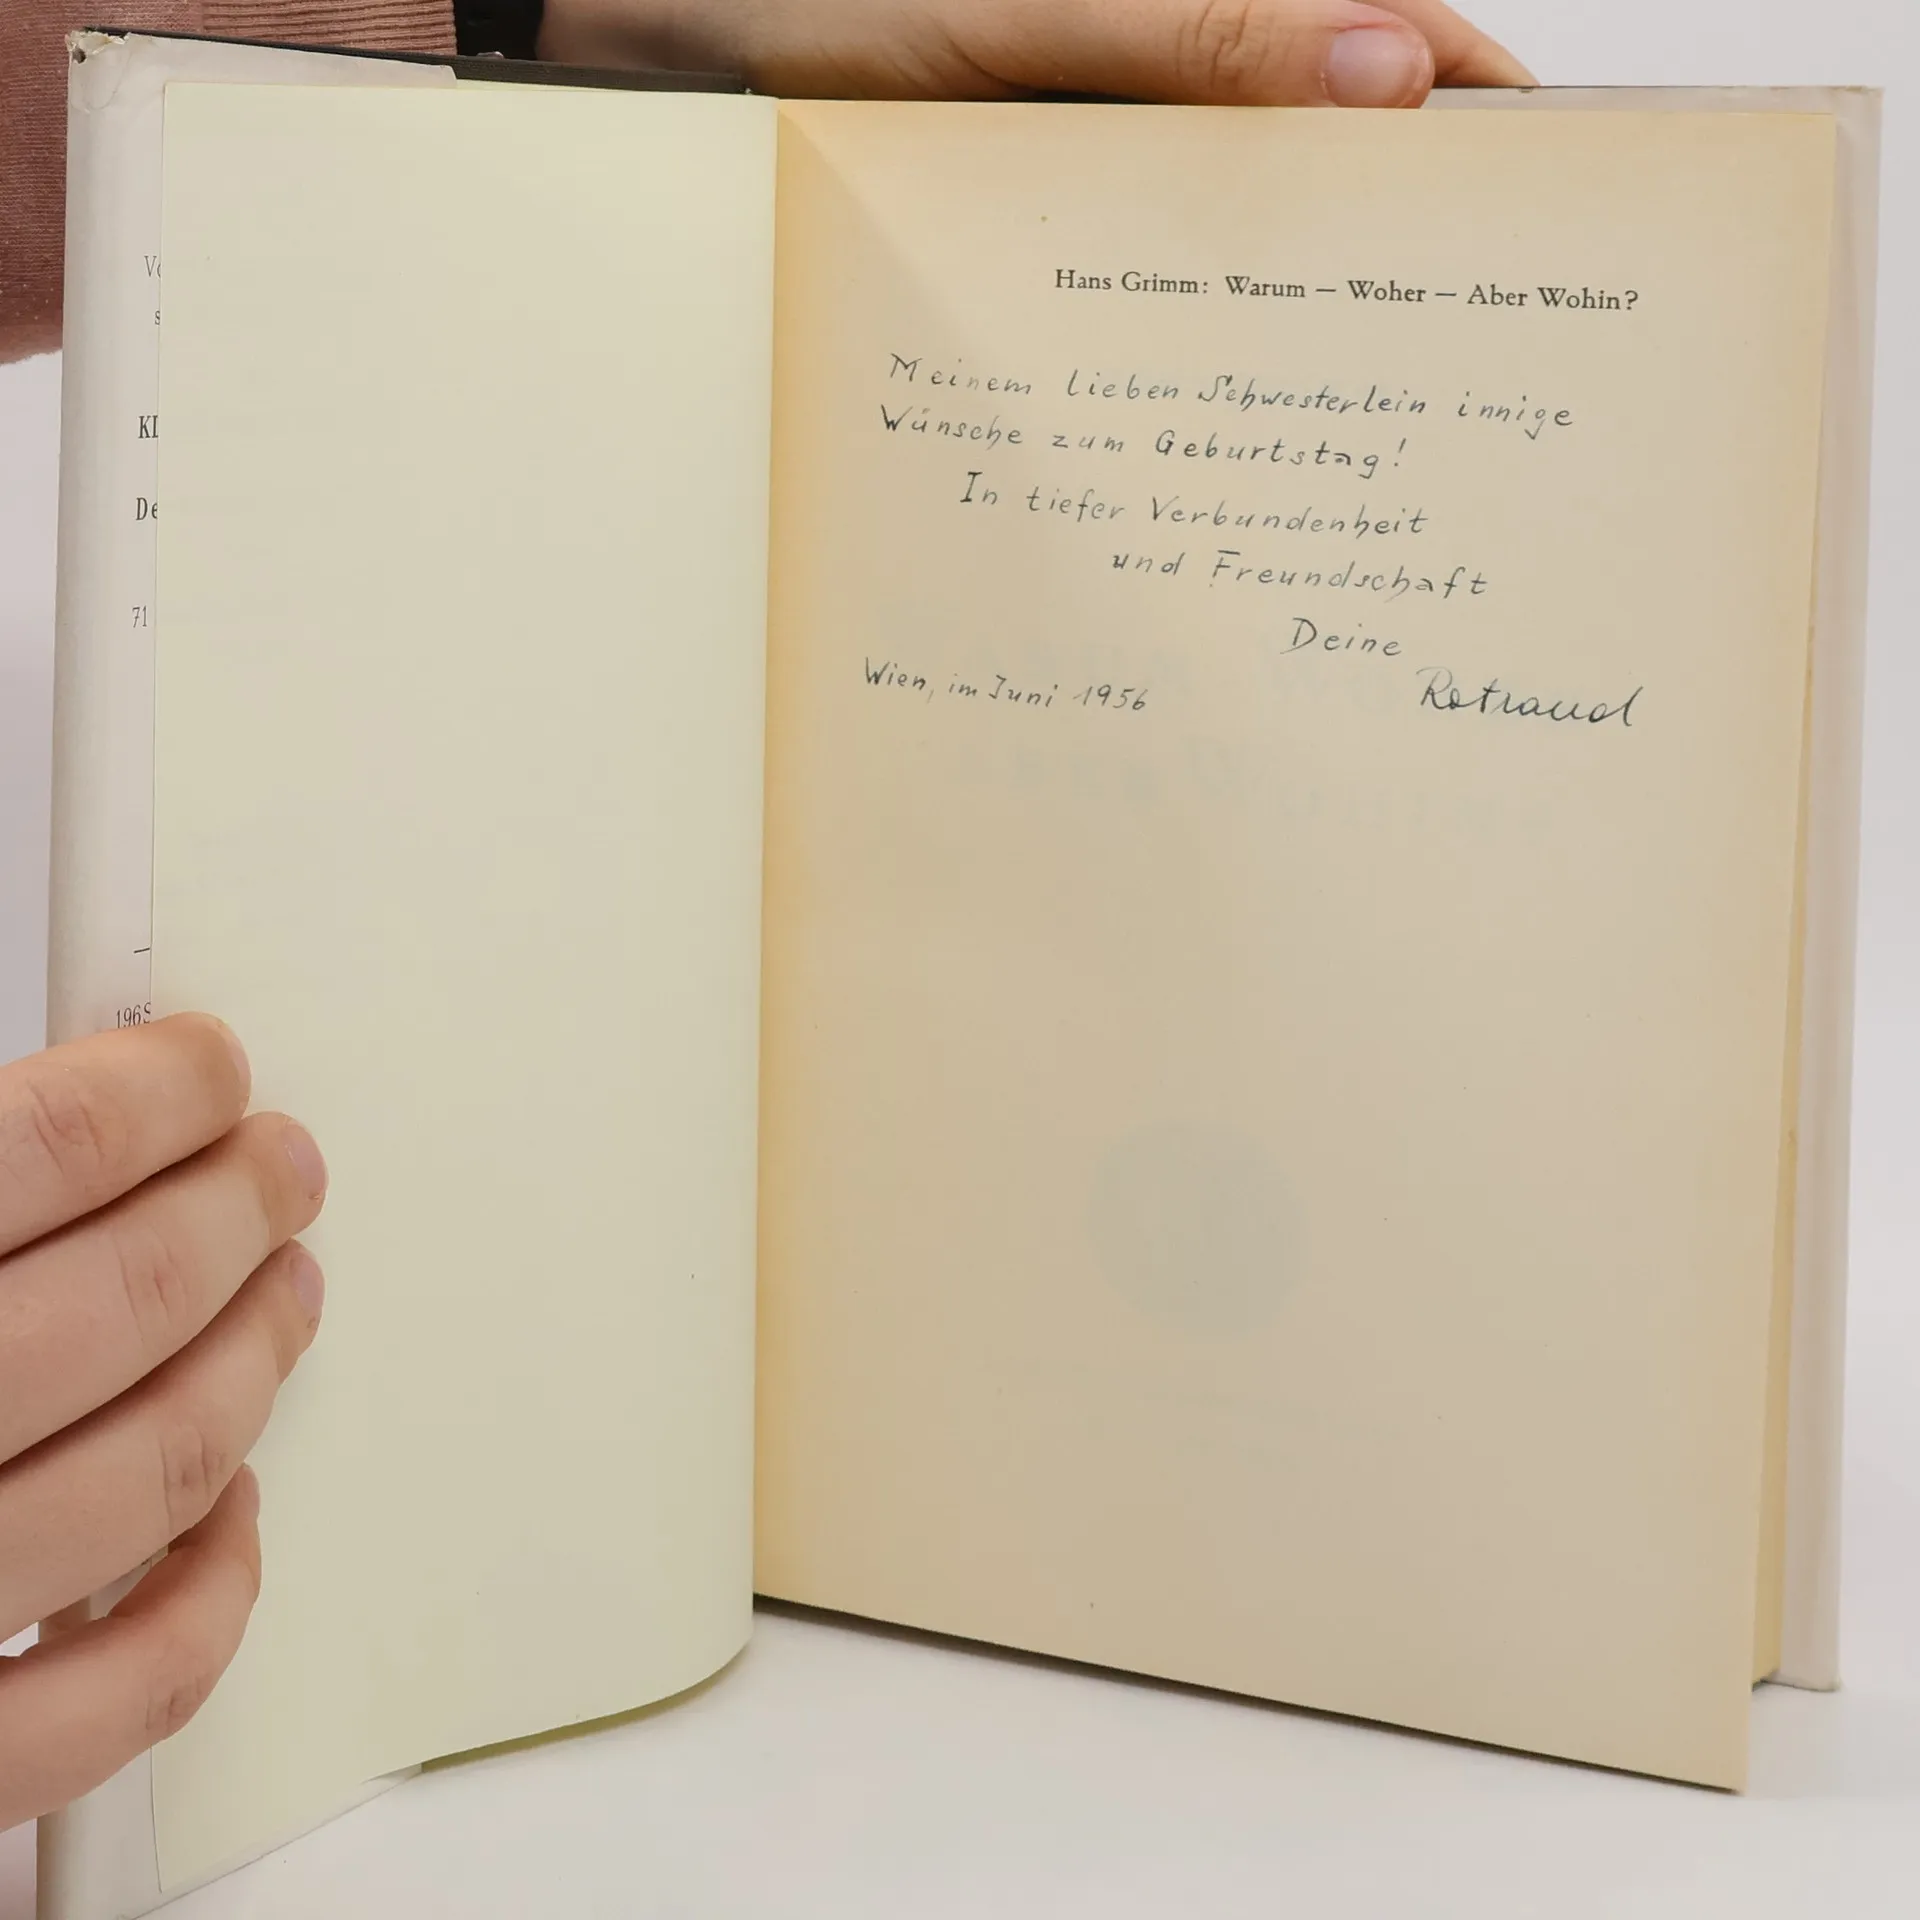 Vo
s
KI
De
71
—
1968
Hans Grimm: Warum — Woher — Aber Wohin?
Meinem lieben Schwesterlein innige
Wünsche zum Geburtstag!
In tiefer Verbundenheit
und Freundschaft
Deine
Rotraud
Wien, im Juni 1956